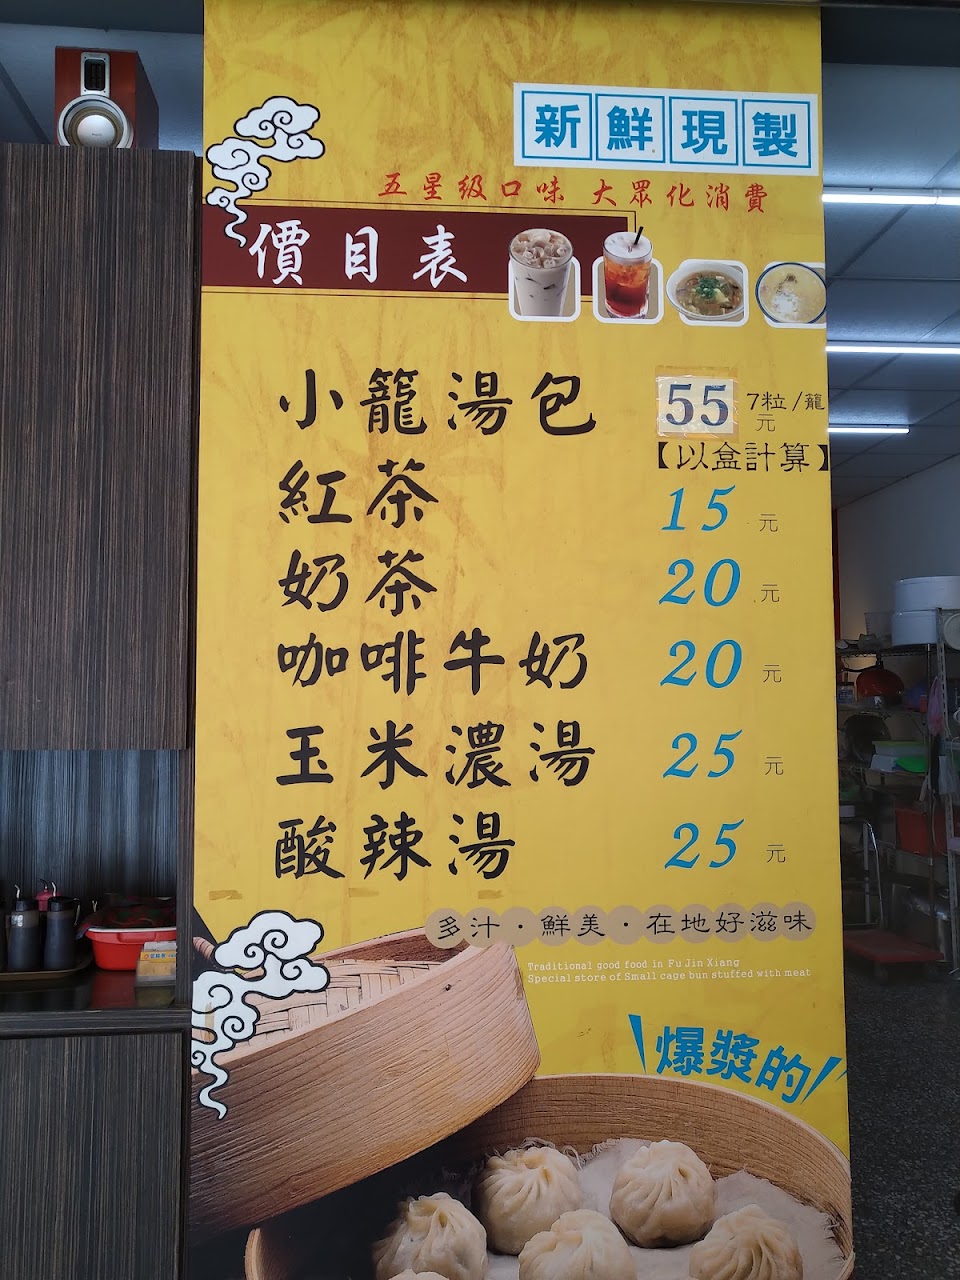 新鮮現製
五星級口味 大眾化消費
價目表
小籠湯包 55 7粒/籠
元
【以盒計算】
紅茶 15 元
奶茶 20 元
咖啡牛奶 20 元
玉米濃湯 25 元
酸辣湯 25 元
多汁·鮮美·在地好滋味
Traditional good food in Fu Jin Xiang
Special store of Small cage bun stuffed with meat
爆漿的